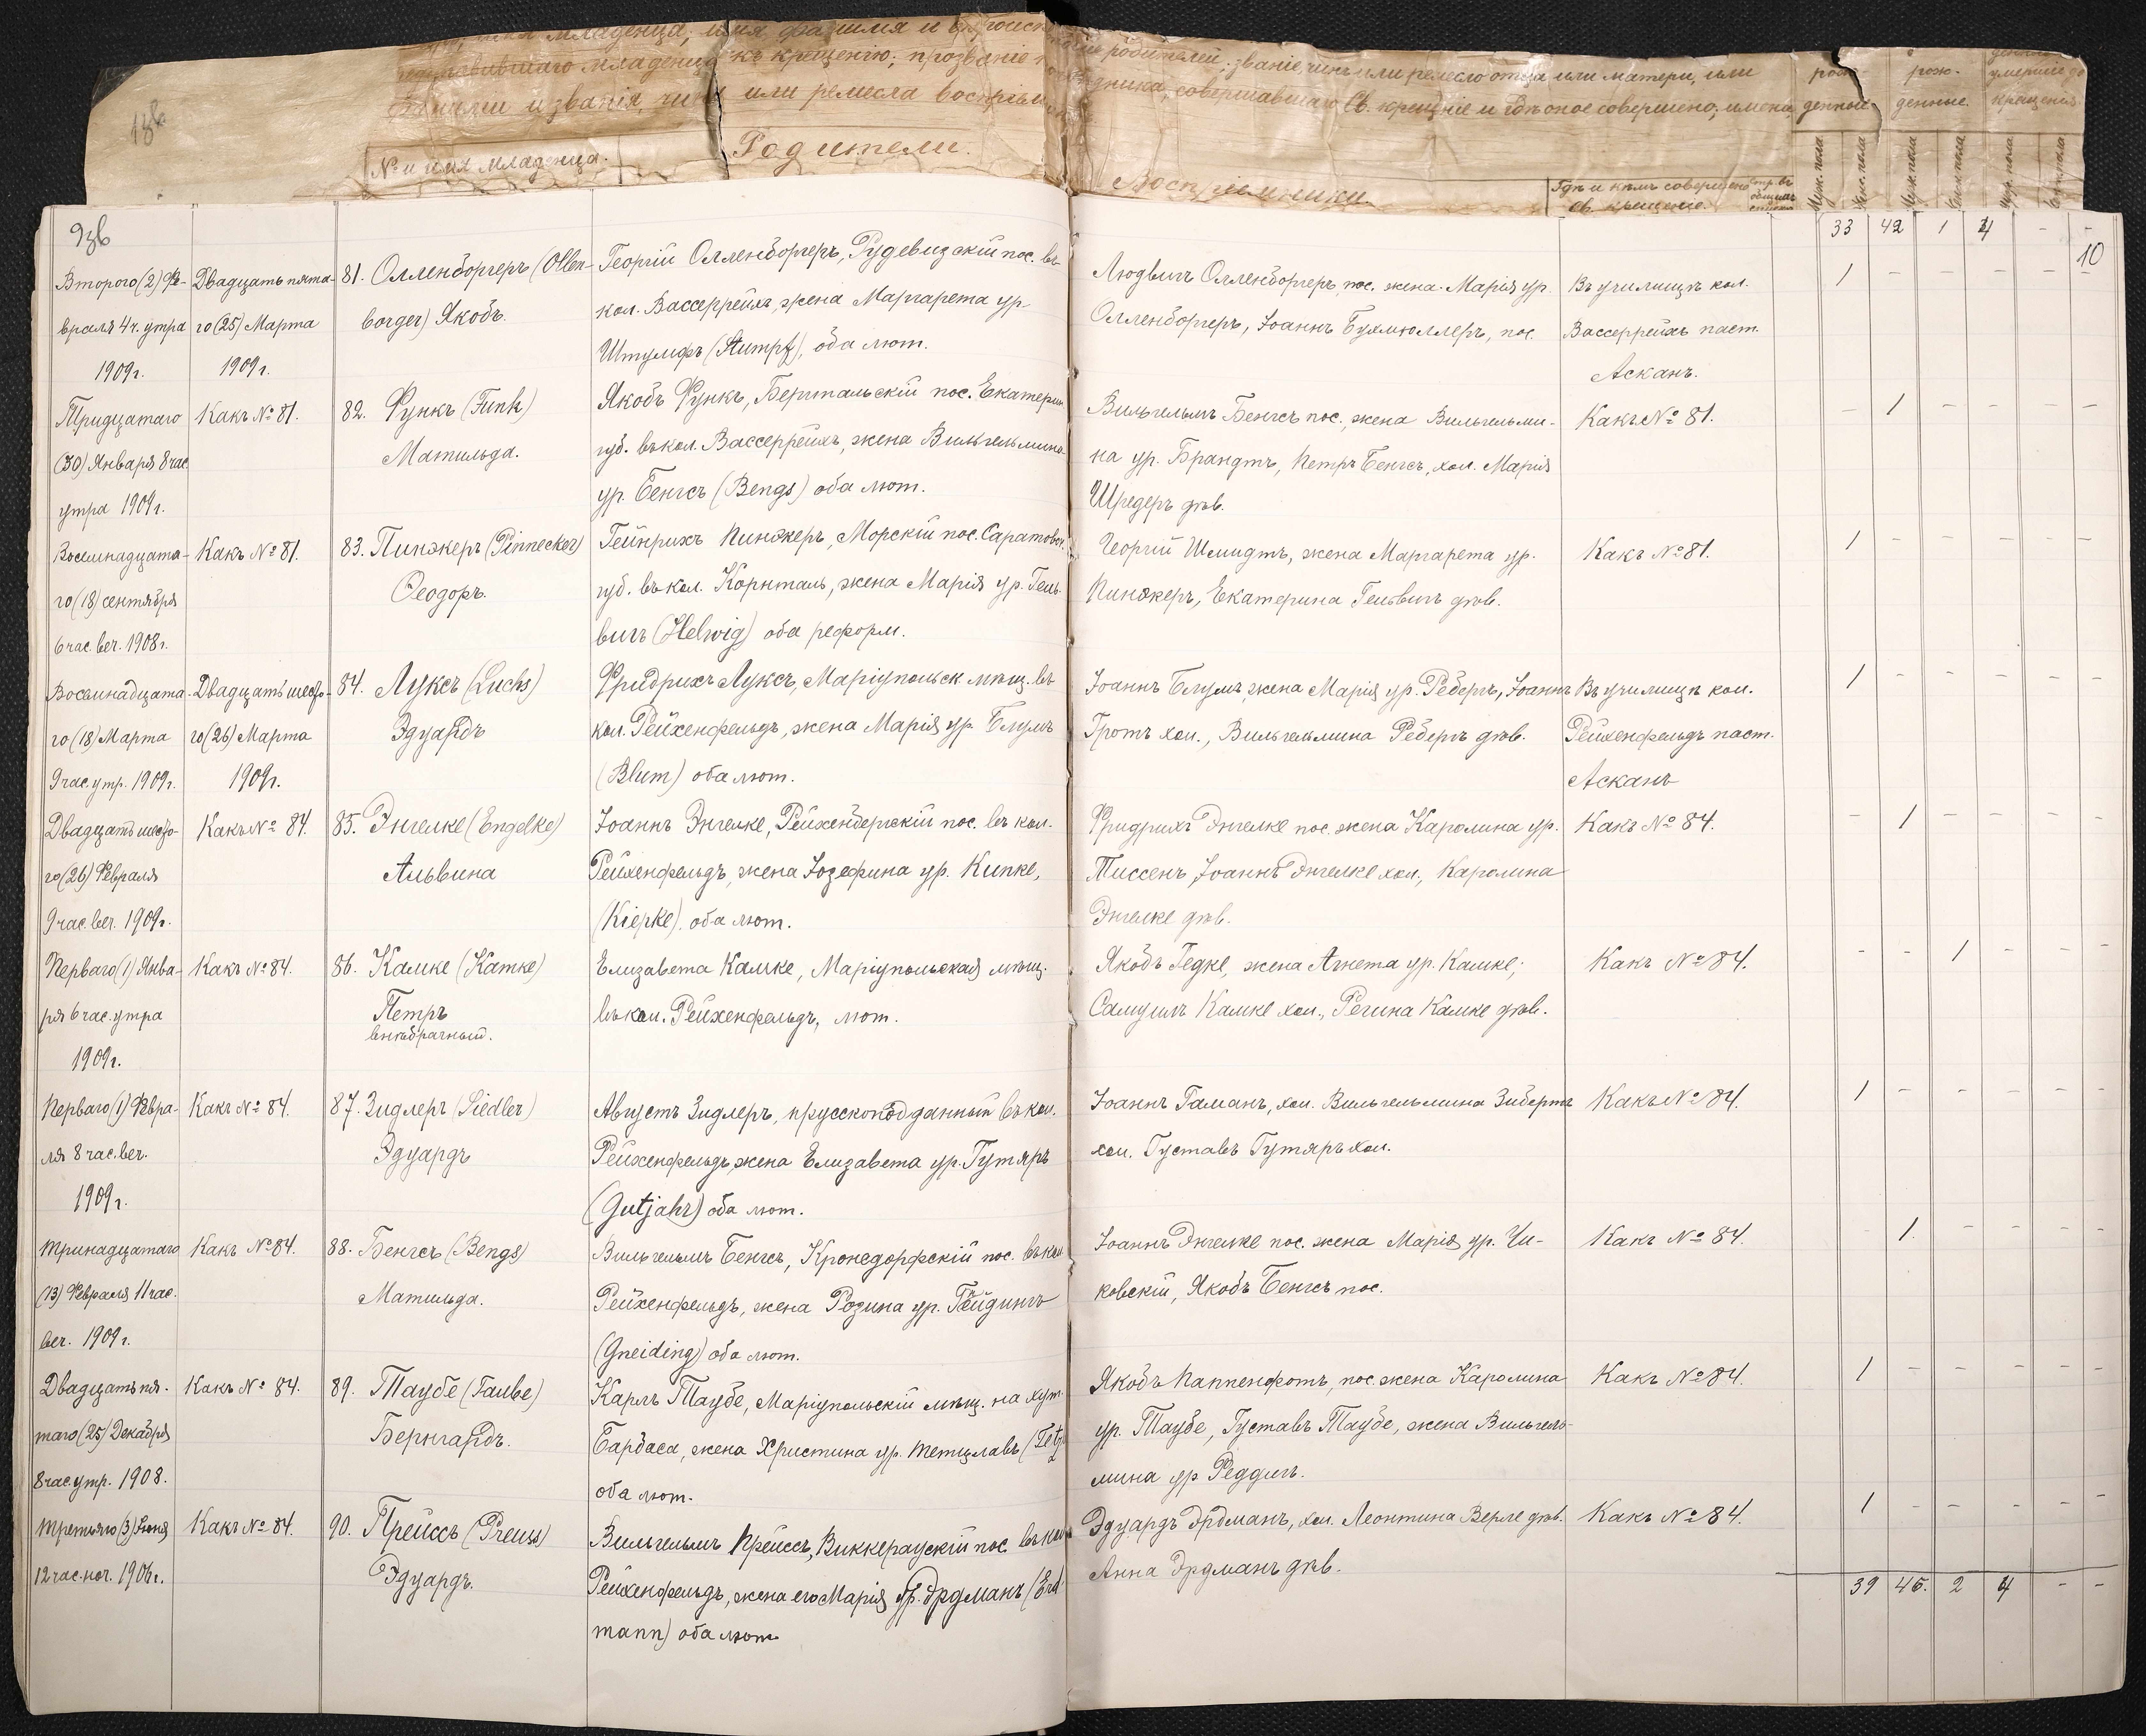 младенца; имя, фамилія и
младенца къ крещенію; прозваніе
фамиліи и званія, чина или ремесла воспріем
родителей; званіе, чинъ или ремесло отца или матери, или
совершавшаго Св. крещеніе и гдѣ оное совершено; имена,
денные
рож-
денные.
умершіе до
крещенія
№ и имя младенца.
Родители.
Воспріемники.
Гдѣ и кѣмъ совершено
св. крещеніе.
Муж. пола
Жен. пола
Муж. пола
Жен. пола
Муж. пола
Жен. пола
33 42 1 4 - -
10
Второго (2) Фе-
враля 4 ч. утра
1909 г.
Двадцать пята-
го (25) Марта
1909 г.
81. Олленборгеръ (Ollen-
borger) Якобъ.
Георгій Олленборгеръ, Рудевизскій пос. въ
кол. Вассеррейхъ, жена Маргарета ур.
Штумпфъ (Stumpf), оба лют.
Людвигъ Олленборгеръ, пос. жена Марія ур.
Олленборгеръ, Іоаннъ Бухмюллеръ, пос.
Въ училищѣ кол.
Вассеррейхъ паст.
Асканъ.
1 - - - - -
Тридцатаго
(30) Января 8 час
утра 1909 г.
Какъ № 81.
82. Функъ (Funk)
Матильда.
Якобъ Функъ, Бертальскій пос. Екатерин.
губ. въ кол. Вассеррейхъ, жена Вильгельмина
ур. Бенгсъ (Bengs) оба лют.
Вильгельмъ Бенгсъ пос., жена Вильгельми-
на ур. Брандтъ, Петръ Бенгсъ, хол. Марія
Шредеръ дѣв.
Какъ № 81.
- 1 - - - -
Восемнадцата-
го (18) сентября
6 час. веч. 1908 г.
Какъ № 81.
83. Пинэкеръ (Pinnecker)
Ѳеодоръ.
Гейнрихъ Пинэкеръ, Морскій пос. Саратовск.
губ. въ кол. Корнталь, жена Марія ур. Гель-
вигъ (Helwig) оба реформ.
Георгій Шмидтъ, жена Маргарета ур.
Пинэкеръ, Екатерина Гельвигъ дѣв.
Какъ № 81.
1 - - - - -
Восемнадцата-
го (18) Марта
9 час. утр. 1909 г.
Двадцать шесто-
го (26) Марта
1909 г.
84. Луксъ (Luchs)
Эдуардъ
Фридрихъ Луксъ, Маріупольск. мѣщ. въ
кол. Рейхенфельдъ, жена Марія ур. Блумъ
(Blum) оба лют.
Іоаннъ Блумъ, жена Марія ур. Ребергъ, Іоаннъ
Гротъ хол., Вильгельмина Ребергъ дѣв.
Въ училищѣ кол.
Рейхенфельдъ паст.
Асканъ
1 - - - - -
Двадцать шесто-
го (26) Февраля
9 час. веч. 1909 г.
Какъ № 84.
85. Энгелке (Engelke)
Альвина
Іоаннъ Энгелке, Рейхенбергскій пос. въ кол.
Рейхенфельдъ, жена Іозефина ур. Кипке,
(Kiepke), оба лют.
Фридрихъ Энгелке пос. жена Каролина ур.
Тиссенъ, Іоаннъ Энгелке хол., Каролина
Энгелке дѣв.
Какъ № 84.
- 1 - - - -
Перваго (1) Янва-
ря 6 час. утра
1909 г.
Какъ № 84.
86. Камке (Kamke)
Петръ
внѣбрачный.
Елизавета Камке, Маріупольская мѣщ.
въ кол. Рейхенфельдъ, лют.
Якобъ Гедке, жена Агнета ур. Камке;
Самуилъ Камке хол., Регина Камке дѣв.
Какъ № 84.
- - 1 - - -
Перваго (1) Февра-
ля 8 час. веч.
1909 г.
Какъ № 84.
87. Зидлеръ (Siedler)
Эдуардъ
Августъ Зидлеръ, прусскоподданный въ кол.
Рейхенфельдъ, жена Елизавета ур. Гутяръ
(Gutjahr) оба лют.
Іоаннъ Гаманъ, хол. Вильгельмина Зибертъ
хол. Густавъ Гутяръ хол.
Какъ № 84.
1 - - - - -
Тринадцатаго
(13) Февраля 11 час.
веч. 1909 г.
Какъ № 84.
88. Бенгсъ (Bengs)
Матильда.
Вильгельмъ Бенгсъ, Кронсдорфскій пос. въ кол
Рейхенфельдъ, жена Розина ур. Гнейдингъ
(Gneiding) оба лют.
Іоаннъ Энгелке пос. жена Марія ур. Чи-
ковскій, Якобъ Бенгсъ пос.
Какъ № 84.
- 1. - - - -
Двадцать пя-
таго (25) Декабря
8 час. утр. 1908.
Какъ № 84.
89. Таубе (Taube)
Бернгардъ.
Карлъ Таубе, Маріупольскій мѣщ. на хут.
Барбаса, жена Христина ур. Тетцлавъ
оба лют.
Якобъ Паппенфотъ, пос. жена Каролина
ур. Таубе, Густавъ Таубе, жена Вильгель-
мина ур. Реддигъ.
Какъ № 84.
1 - - - - -
Третьяго (3) Іюня
12 час. ноч. 1906 г.
Какъ № 84.
90. Прейссъ (Preuss)
Эдуардъ.
Вильгельмъ Прейссъ, Виккерауский пос. въ кол
Рейхенфельдъ, жена его Марія ур. Эрдманъ (Erd-
mann) оба лют.
Эдуардъ Эрдманъ, хол. Леонтина Верле дѣв.
Анна Эрдманъ дѣв.
Какъ № 84.
1 - - - - -
39 45. 2 4 - -